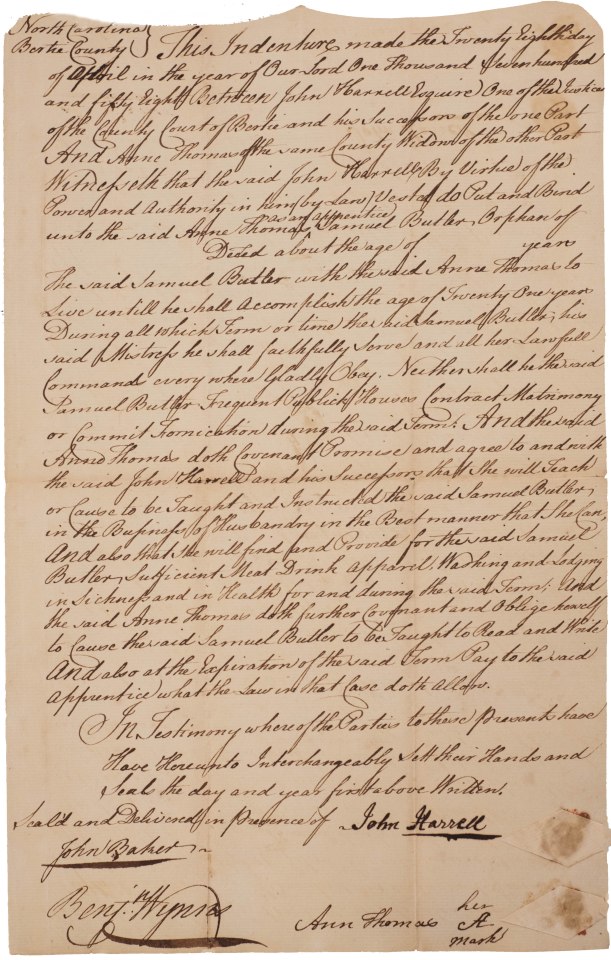 North Carolina
Bertie County } This Indenture made the Twenty Eighth day
of April in the year of Our Lord One Thousand Sevenhundred
and fifty Eight Between John Harrell Esquire One of the Justices
of the County Court of Bertie and his Successors of the one Part
And Anne Thomas of the same County Widow of the other Part
Witnesseth that the said John Harrell, By Virtue of the
Power and Authority in him by Law Vested do Put and Bind
unto the said Anne Thomas as an apprentice Samuel Butler, Orphan of
Deced about the age of years
The said Samuel Butler with the said Anne Thomas to
Live untill he shall Accomplish the age of Twenty One years
During all which Term or time the said Samuel Butler, his
said Mistress he shall faithfully Serve and all her Lawfull
Command every where Gladly Obey. Neither shall he the said
Samuel Butler Frequent Publick Houses Contract Matrimony
or Commit Fornication during the said Term: And the said
Anne Thomas doth Covenant Promise and agree to and with
the said John Harrell and his Successors that She will Teach
or Cause to be Taught and Instructed the said Samuel Butler,
in the Business of Husbandry in the Best manner that She Can
And also that She will find and Provide for the said Samuel
Butler, Sufficient Meat Drink Apparel Washing and Lodging
in Sickness and in Health for and during the said Term; And
the said Anne Thomas doth further Covenant and Oblige herself
to Cause the said Samuel Butler to be Taught to Read and Write
And also at the Expiration of the said Term Pay to the said
Apprentice what the Law in that Case doth Allow.
In Testimony where of the Parties to these Presents have
Have Hereunto Interchangeably Sett their Hands and
Seals the day and year first above Written.
Seal'd and Delivered in Presence of John Harrell
John Baker
Benjn. Wynns
Ann Thomas her
A
mark